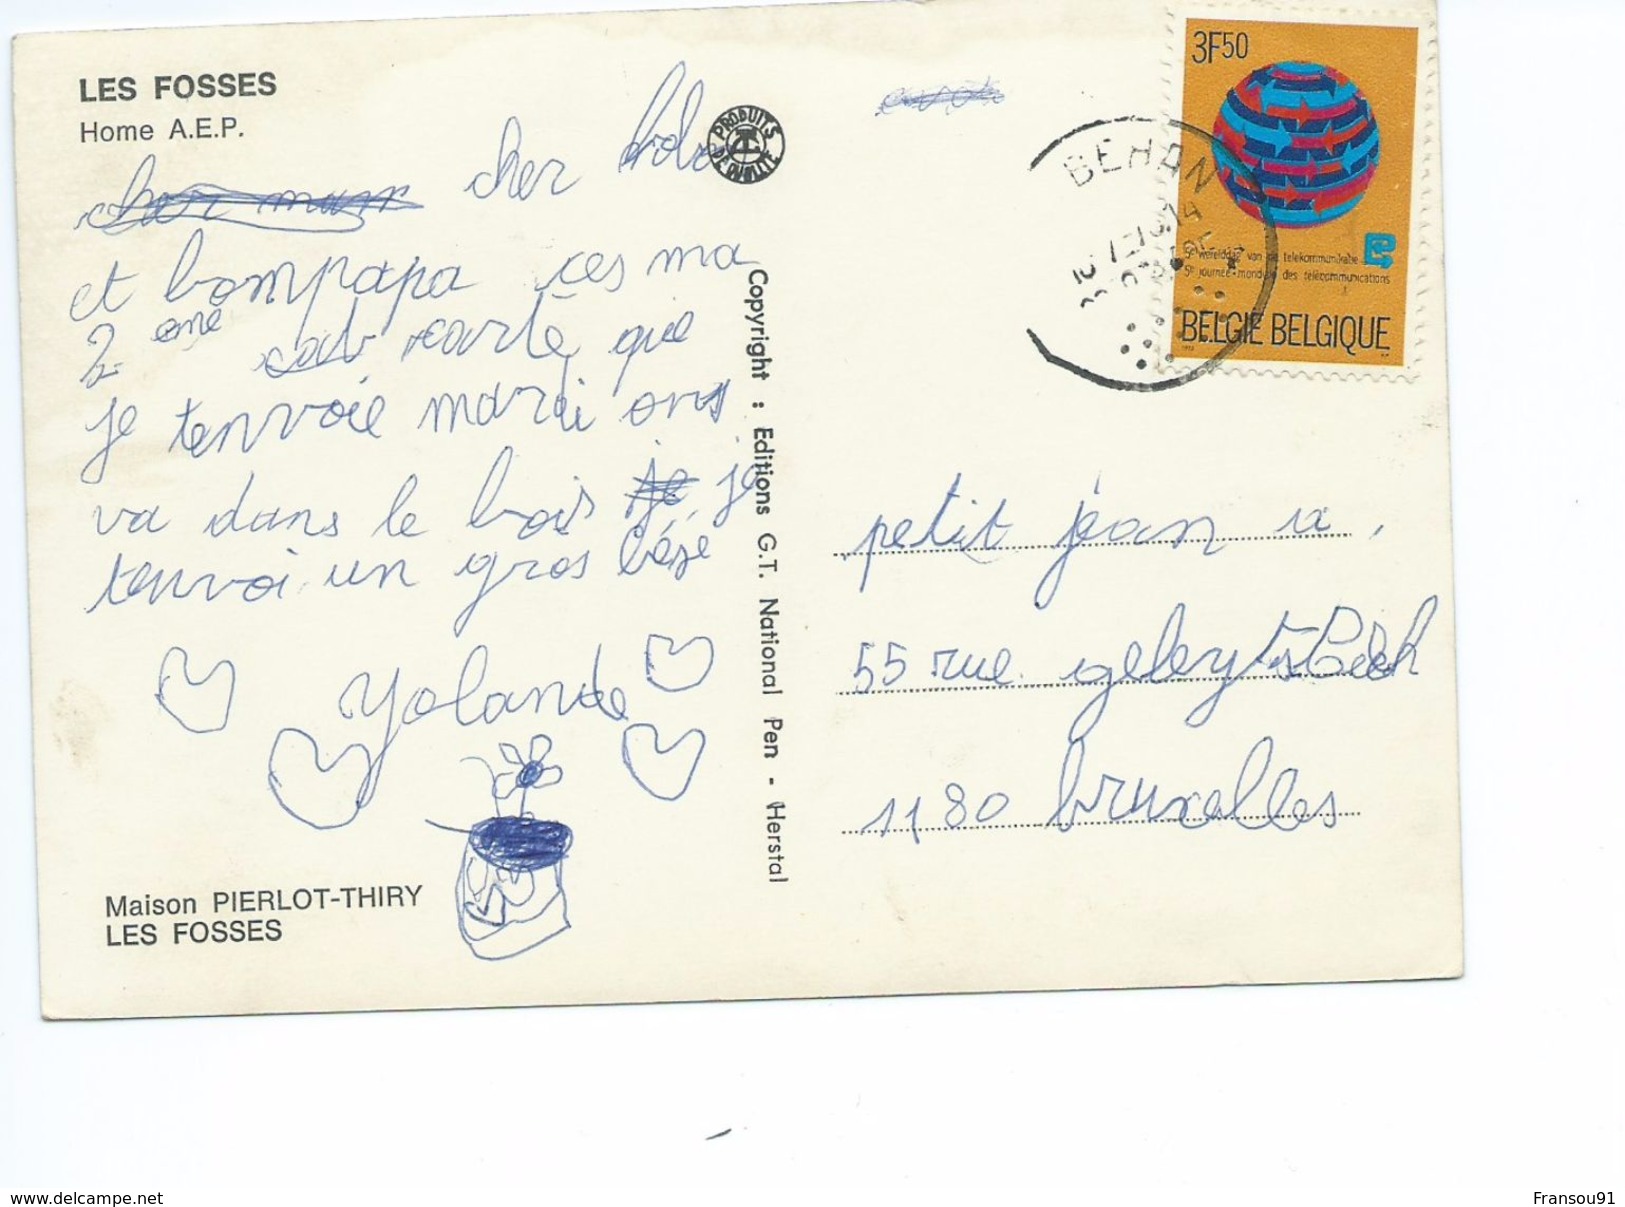 LES FOSSES
Home A.E.P.
cher bobo
et bompapa ces ma
2 eme carte que
je tenvoie mardi ons
va dans le bois je
tenvoi un gros bésé
Yolande
Maison PIERLOT-THIRY
LES FOSSES
PRODUITS DE QUALITE
Copyright : Editions G.T. National Pen - Herstal
3F50
5e werelddag van de telekommunikatie
5e journée mondiale des télécommunications
BELGIE BELGIQUE
BEHAN
petit jéan
55 rue geleyts
1180 bruxelles
www.delcampe.net
Fransou91